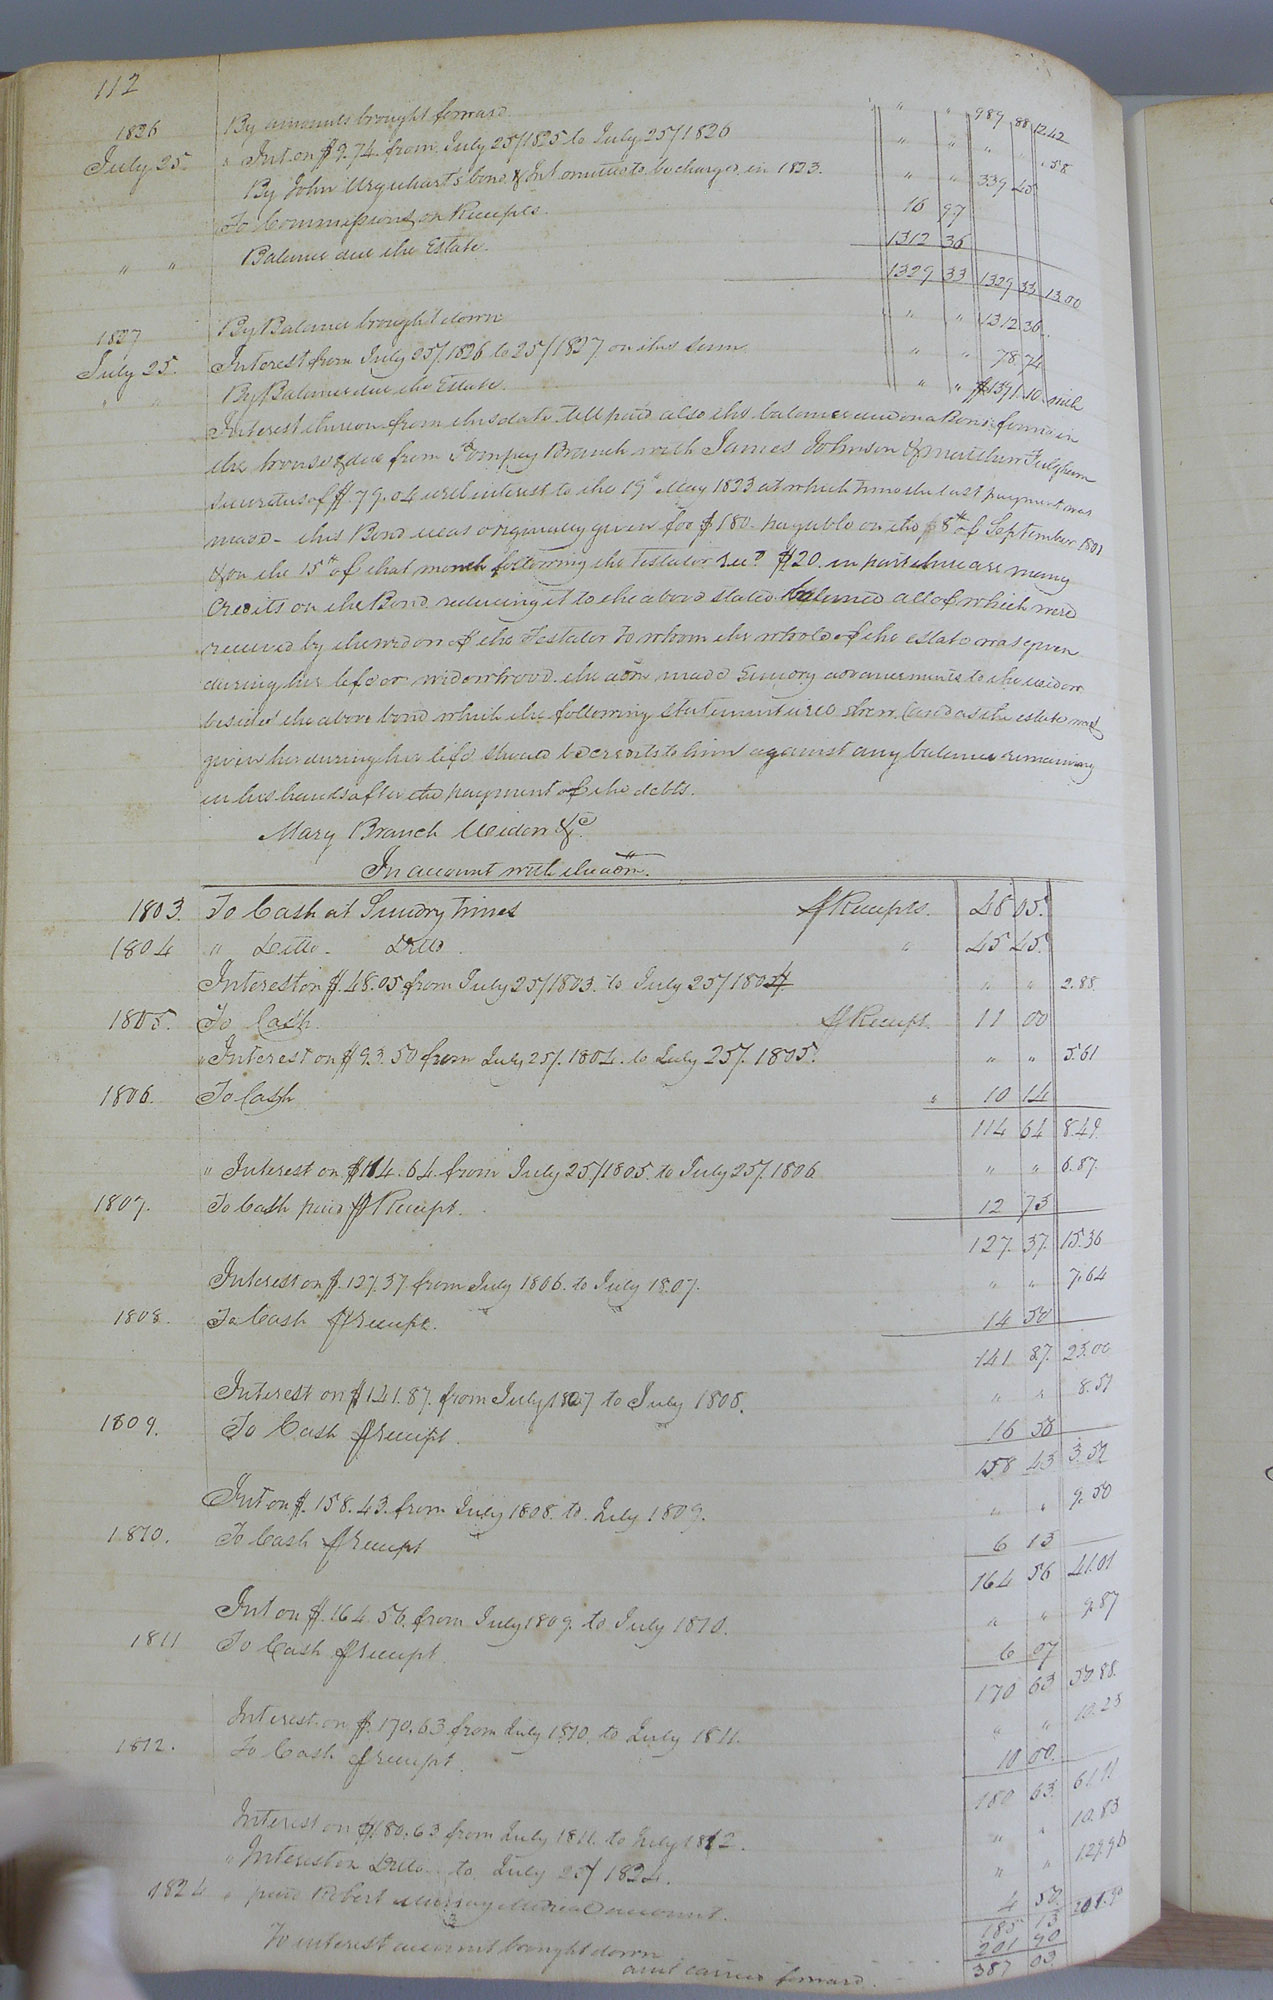 112
1826 By amounts brought forward " " 989 88 12.42
July 25. " Int. on $9.74. from July 25/1825 to July 25/1826 " " " " .58
By John Urquhart's bond & Int omitted to be charged in 1823. " " 339 45
To Commissions on Receipts. 16 97
" " Balance due the Estate. 1312 36
1329 33 1329 33 13.00
1827 By Balance brought down " " 1312 36
July 25. Interest from July 25/1826 to 25/1827 on this sum " " 78 74
" " By Balance due the Estate. " " $1391.10 with
Interest thereon from this date till paid also the balance due on a Bond found in
the house & due from Pompey Branch with James Johnson & Fulgham
Securities of $79.04 with interest to the 19th May 1823 at which time the last payment was
made - this Bond was originally given for $180. payable on the 8th of September 1801
& on the 15th of that month following the Testator recd. $20. in part there are many
Credits on the Bond reducing it to the above stated balance all of which were
received by the widow of the Testator to whom the whole of the estate was given
during her life or widowhood. the adm made Sundry advancements to the widow
besides the above bond which the following statement will shew (and as the estate was
given her during her life should be credits to him against any balance remaining
in his hands after the payment of the debts.
Mary Branch Widow &c.
In account with the adm.
1803. To Cash at Sundry times Receipts. 48 05.
1804 " Ditto. Ditto. " 45 45.
Interest on $.48.05 from July 25/1803. to July 25/1804 " " 2.88
1805. To Cash. Receipt. 11 00
" Interest on $93.50 from July 25/. 1804. to July 25/. 1805. " " 5.61
1806. To Cash " 10 14
114 64 8.49
" Interest on $114.64. from July 25/1805. to July 25/. 1806 " " 6.87
1807. To Cash paid Receipt. 12 73
127. 37. 15.36
Interest on $.127.37 from July 1806. to July 1807. " " 7.64
1808. To Cash receipt. 14 50
141 87. 23.00
Interest on $141.87. from July 1807 to July 1808. " " 8.51
1809. To Cash receipt. 16 56
158 43 31.51
Int on $. 158.43. from July 1808. to July 1809. " " 9.50
1810. To Cash receipt 6 13
164 56 41.01
Int on $.164.56. from July 1809. to July 1810. " " 9.87
1811 To Cash receipt. 6 07
170 63 50.88.
Interest on $.170.63 from July 1810. to July 1811. " " 10.23
1812. To Cash receipt. 10 00.
180 63. 61.11
Interest on $180.63 from July 1811. to July 1812. " " 10.83
" Interest on Ditto to July 25/ 1824. " " 129.96
1824 " paid Robert Murray Medical account. 4 50.
185 13 201.90
To interest account brought down 201 90
amt carried forward. 387 03